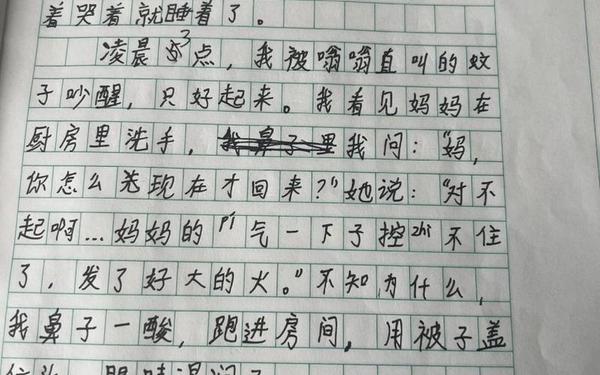 着哭着就睡着了。
凌晨3点，我被嗡嗡直叫的蚊
子吵醒，只好起来。我看见妈妈在
厨房里洗手，我问：“妈，
你怎么现在才回来？”她说：“对不
起啊…妈妈的pí气一下子控zhì不住
了，发了好大的火。”不知为什么，
我鼻子一酸，跑进房间，用被子盖